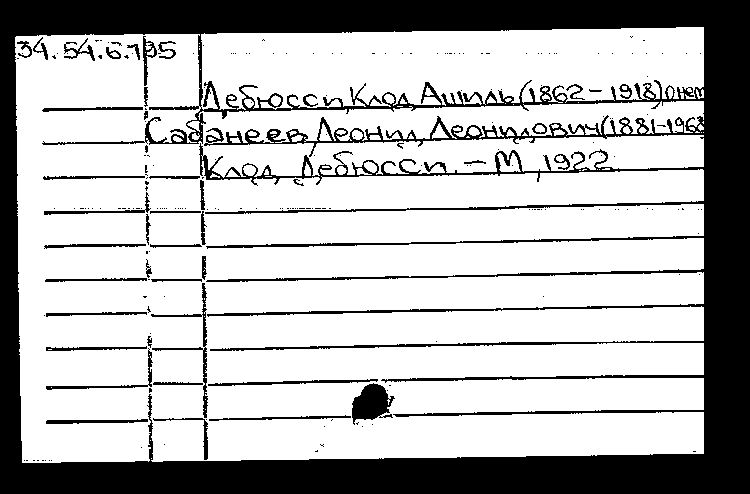 34.54.6.195
Дебюсси, Клод Ашиль (1862-1918) о нем
Сабанеев, Леонид Леонидович (1881-1968
Клод Дебюсси. - М, 1922